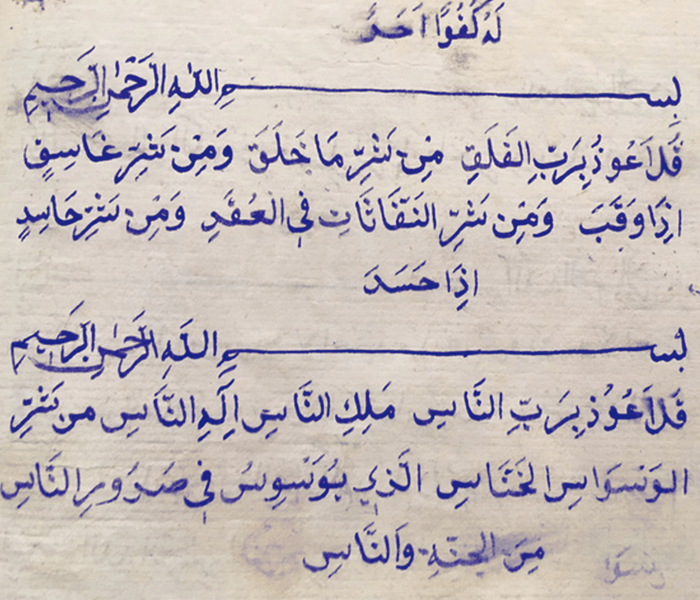 لَهُ كُفُوًا اَحَدٌ
بِسـمِ اللهِ الرَّحْمٰنِ الرَّحِيمِ
قُلْ اَعُوذُ بِرَبِّ الْفَلَقِ مِنْ شَرِّ مَا خَلَقَ وَمِنْ شَرِّ غَاسِقٍ
اِذَا وَقَبَ وَمِنْ شَرِّ النَّفَّاثَاتِ فِي الْعُقَدِ وَمِنْ شَرِّ حَاسِدٍ
اِذَا حَسَدَ
بِسـمِ اللهِ الرَّحْمٰنِ الرَّحِيمِ
قُلْ اَعُوذُ بِرَبِّ النَّاسِ مَلِكِ النَّاسِ اِلٰهِ النَّاسِ مِنْ شَرِّ
الْوَسْوَاسِ الْخَنَّاسِ الَّذِي يُوَسْوِسُ فِي صُدُورِ النَّاسِ
مِنَ الْجِنَّةِ وَالنَّاسِ